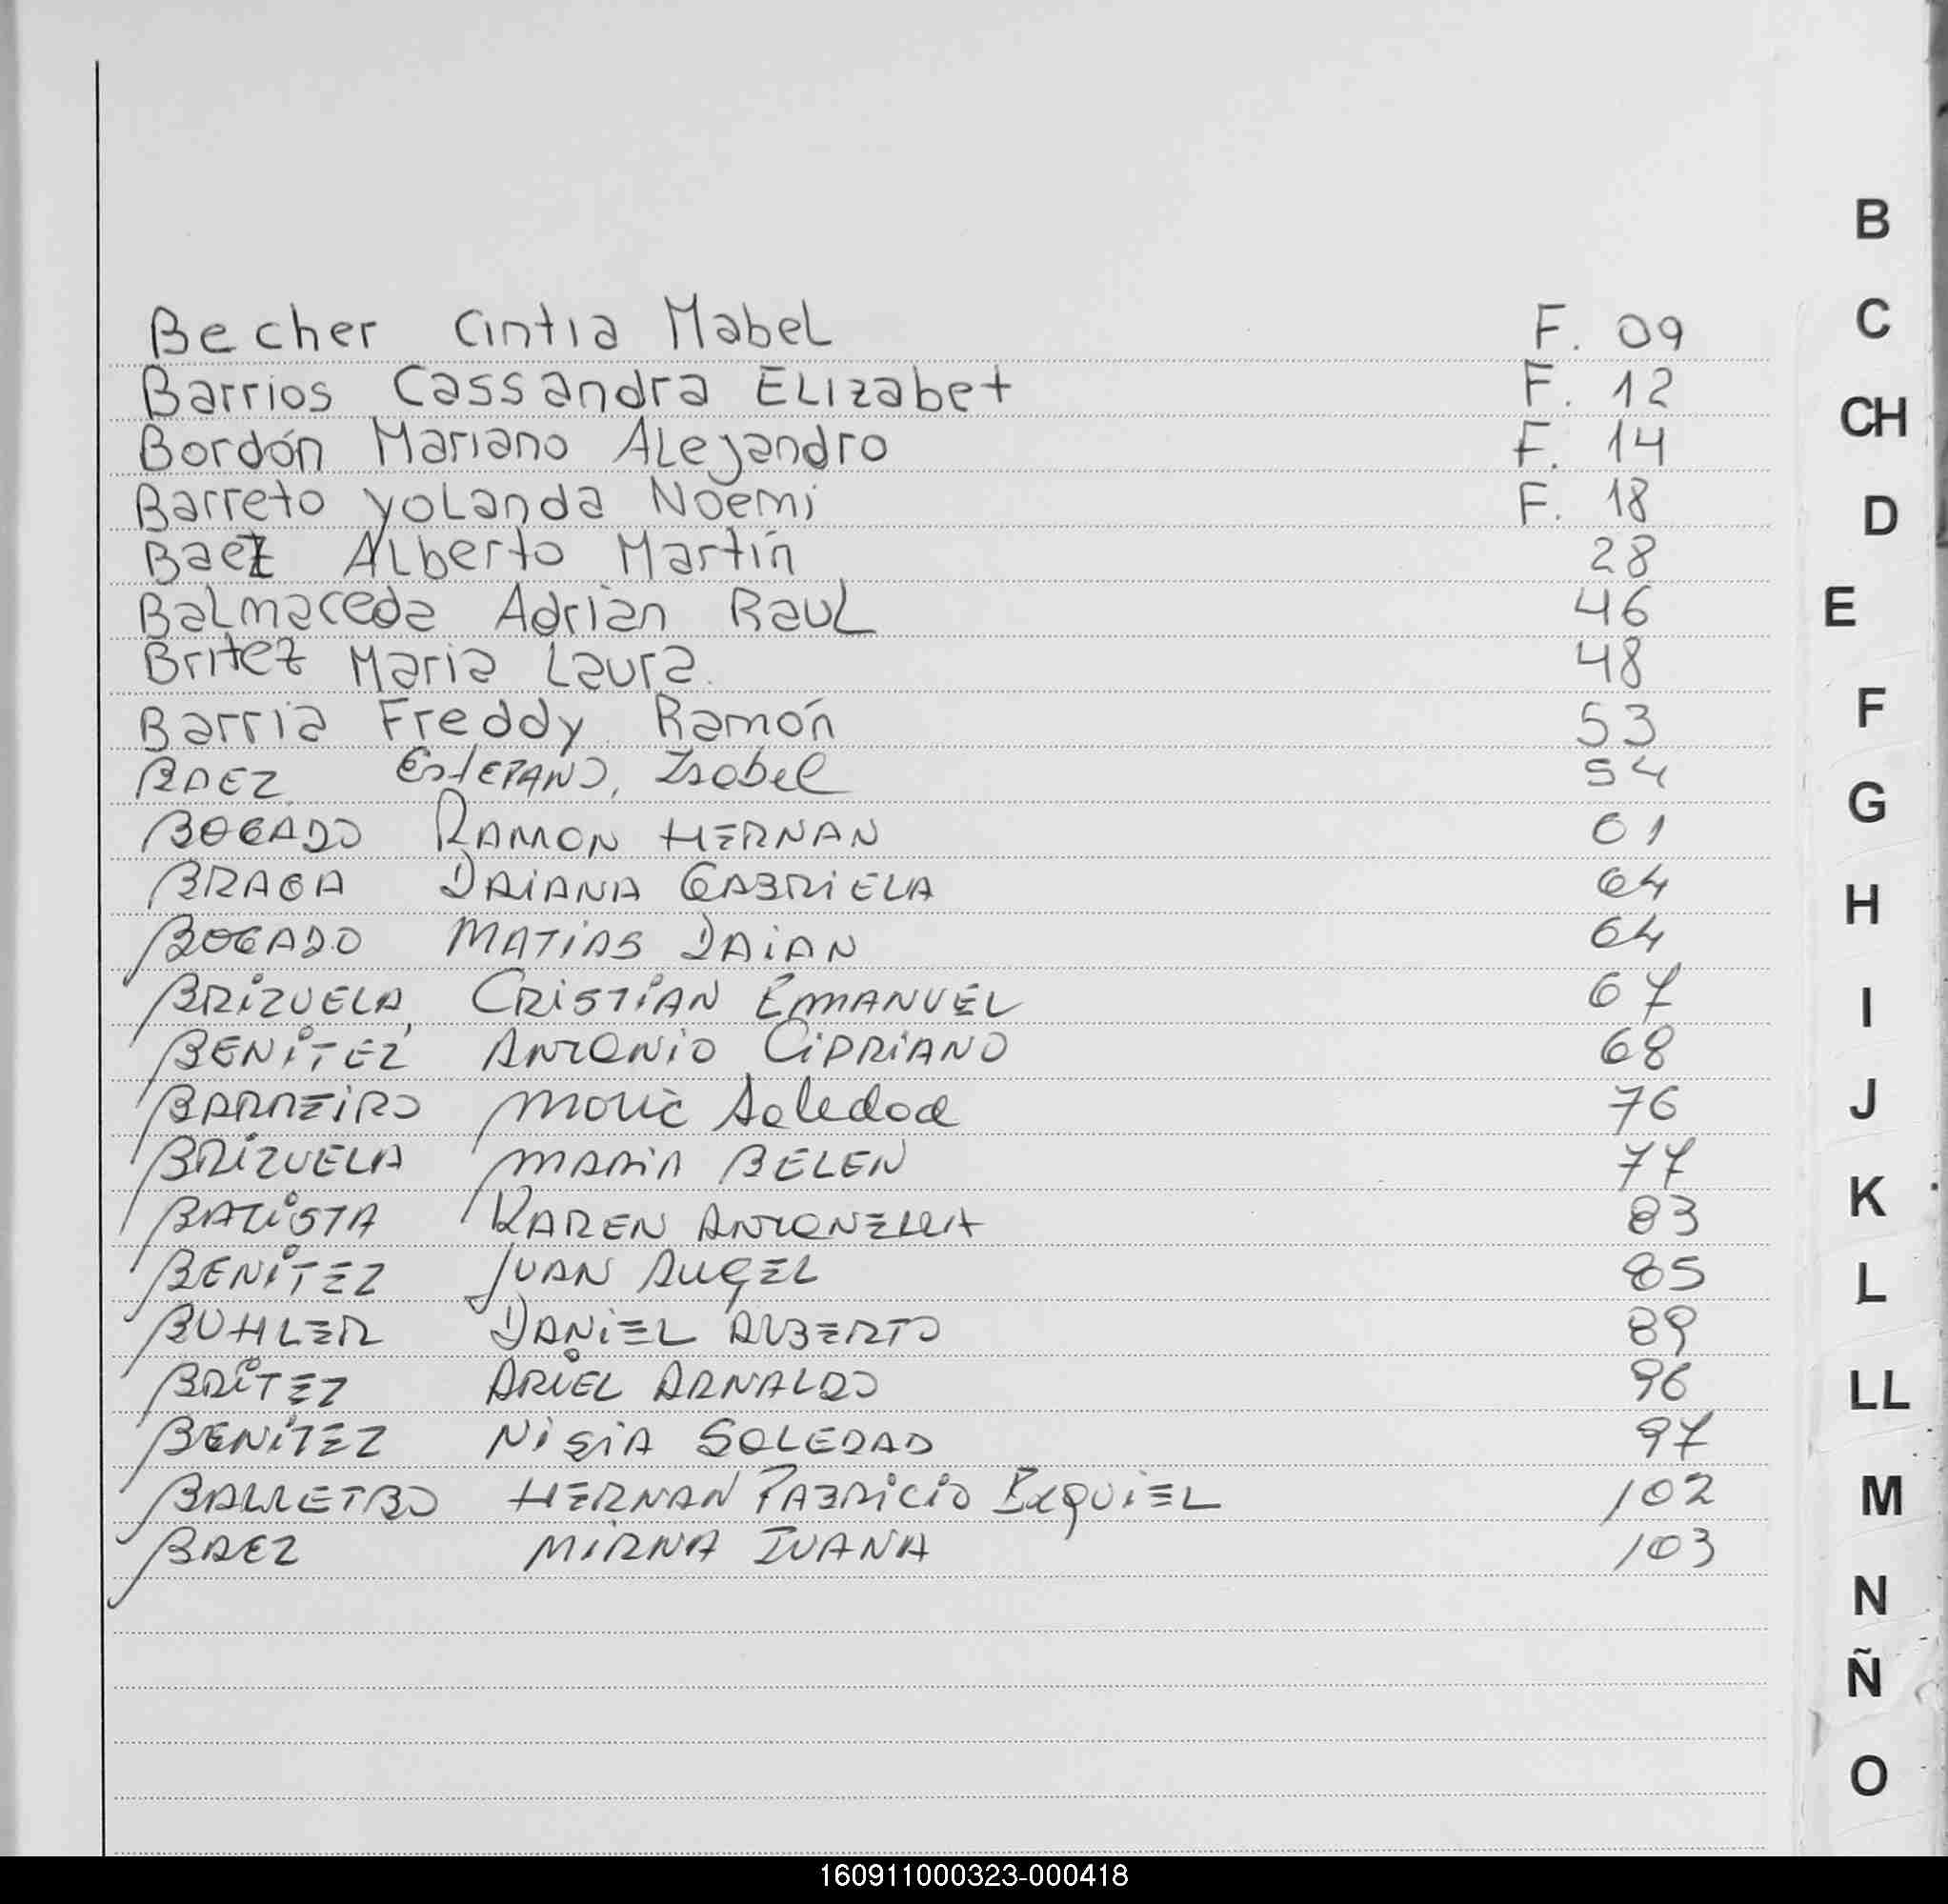 Becher Cintia Mabel F. 09
Barrios Cassandra Elizabet F. 12
Bordón Mariano Alejandro F. 14
Barreto Yolanda Noemi F. 18
Baez Alberto Martín 28
Balmaceda Adrian Raul 46
Britez Maria Laura. 48
Barria Freddy Ramón 53
BAEZ Estefano, Isabel 54
BOGADO RAMON HERNAN 61
BRAGA DAIANA GABRIELA 64
BOGADO MATIAS DAIAN 64
BRIZUELA, CRISTIAN EMANUEL 67
BENITEZ ANTONIO CIPRIANO 68
BARREIRO Maria Soledad 76
BRIZUELA MARIA BELEN 77
BATISTA KAREN ANTONELLA 83
BENITEZ JUAN ANGEL 85
BUHLER DANIEL ALBERTO 89
BRITEZ ARIEL ARNALDO 96
BENITEZ SOLEDAD 97
HERNAN FABRICIO EXQUIEL 102
BAEZ MIRNA IVANA 103
B
C
CH
D
E
F
G
H
I
J
K
L
LL
M
N
Ñ
O
160911000323-000418